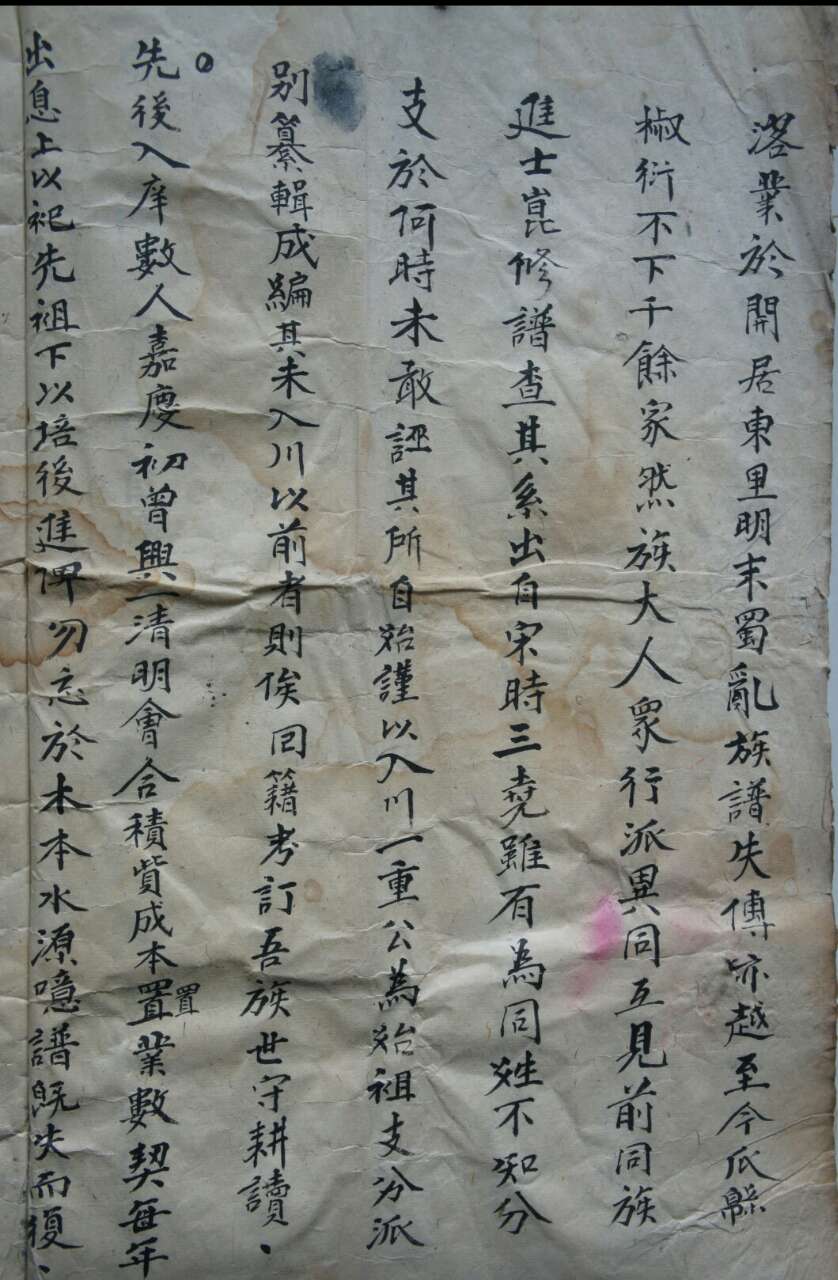 落業於開居東里明末蜀亂族譜失傳迹越至今瓜緜
椒衍不下千餘家然族大人衆行派異同互見前同族
進士崑修譜查其系出自宋時三堯雖有為同姓不知分
支於何時未敢誣其所自始謹以入川一重公為始祖支分派
别纂輯成編其未入川以前者則俟回籍考訂吾族世守耕讀、
先後入庠數人嘉慶初曾興一清明會合積貲成本置業數契每年
置
出息上以祀先祖下以培後進俾勿忘於木本水源噫譜既失而復、